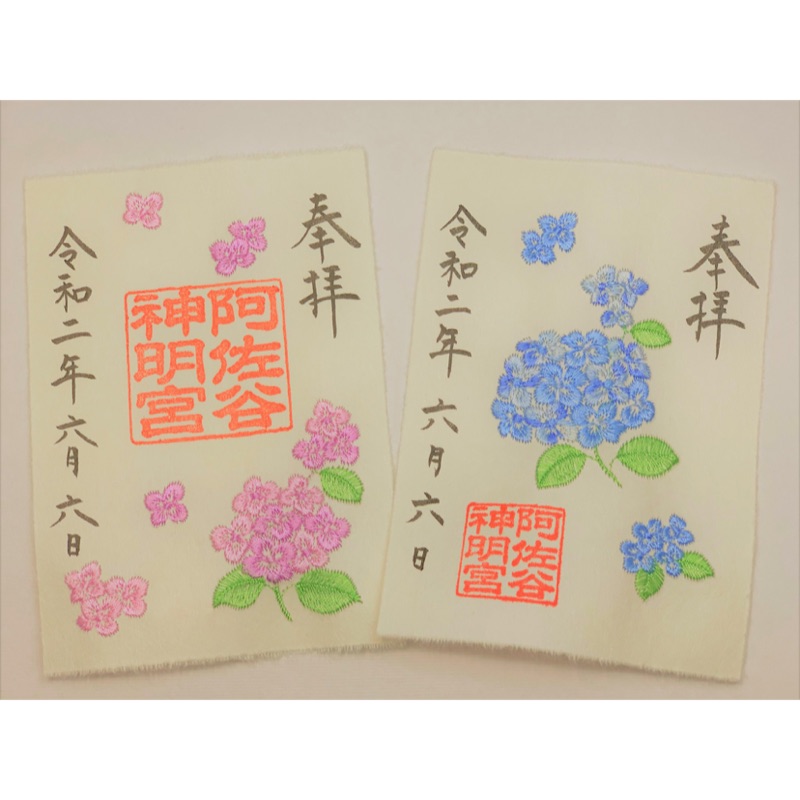 奉拝
阿佐谷
神明宮
令和二年六月六日
奉拝
阿佐谷
神明宮
令和二年六月六日